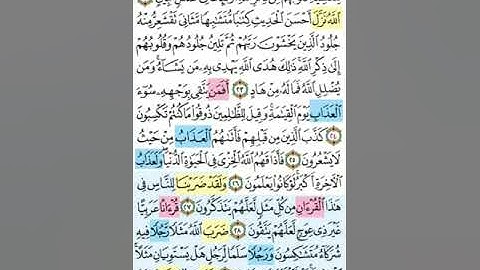 ٱللَّهُ نَزَّلَ أَحْسَنَ ٱلْحَدِيثِ كِتَٰبًا مُّتَشَٰبِهًا مَّثَانِىَ تَقْشَعِرُّ مِنْهُ
جُلُودُ ٱلَّذِينَ يَخْشَوْنَ رَبَّهُمْ ثُمَّ تَلِينُ جُلُودُهُمْ وَقُلُوبُهُمْ
إِلَىٰ ذِكْرِ ٱللَّهِ ذَٰلِكَ هُدَى ٱللَّهِ يَهْدِى بِهِۦ مَن يَشَآءُ وَمَن
يُضْلِلِ ٱللَّهُ فَمَا لَهُۥ مِنْ هَادٍ ٢٣ أَفَمَن يَتَّقِى بِوَجْهِهِۦ سُوٓءَ
ٱلْعَذَابِ يَوْمَ ٱلْقِيَٰمَةِ وَقِيلَ لِلظَّٰلِمِينَ ذُوقُوا۟ مَا كُنتُمْ تَكْسِبُونَ
٢٤ كَذَّبَ ٱلَّذِينَ مِن قَبْلِهِمْ فَأَتَىٰهُمُ ٱلْعَذَابُ مِنْ حَيْثُ
لَا يَشْعُرُونَ ٢٥ فَأَذَاقَهُمُ ٱللَّهُ ٱلْخِزْىَ فِى ٱلْحَيَوٰةِ ٱلدُّنْيَا وَلَعَذَابُ
ٱلْءَاخِرَةِ أَكْبَرُ لَوْ كَانُوا۟ يَعْلَمُونَ ٢٦ وَلَقَدْ ضَرَبْنَا لِلنَّاسِ فِى
هَٰذَا ٱلْقُرْءَانِ مِن كُلِّ مَثَلٍ لَّعَلَّهُمْ يَتَذَكَّرُونَ ٢٧ قُرْءَانًا عَرَبِيًّا
غَيْرَ ذِى عِوَجٍ لَّعَلَّهُمْ يَتَّقُونَ ٢٨ ضَرَبَ ٱللَّهُ مَثَلًا رَّجُلًا فِيهِ
شُرَكَآءُ مُتَشَٰكِسُونَ وَرَجُلًا سَلَمًا لِّرَجُلٍ هَلْ يَسْتَوِيَانِ مَثَلًا